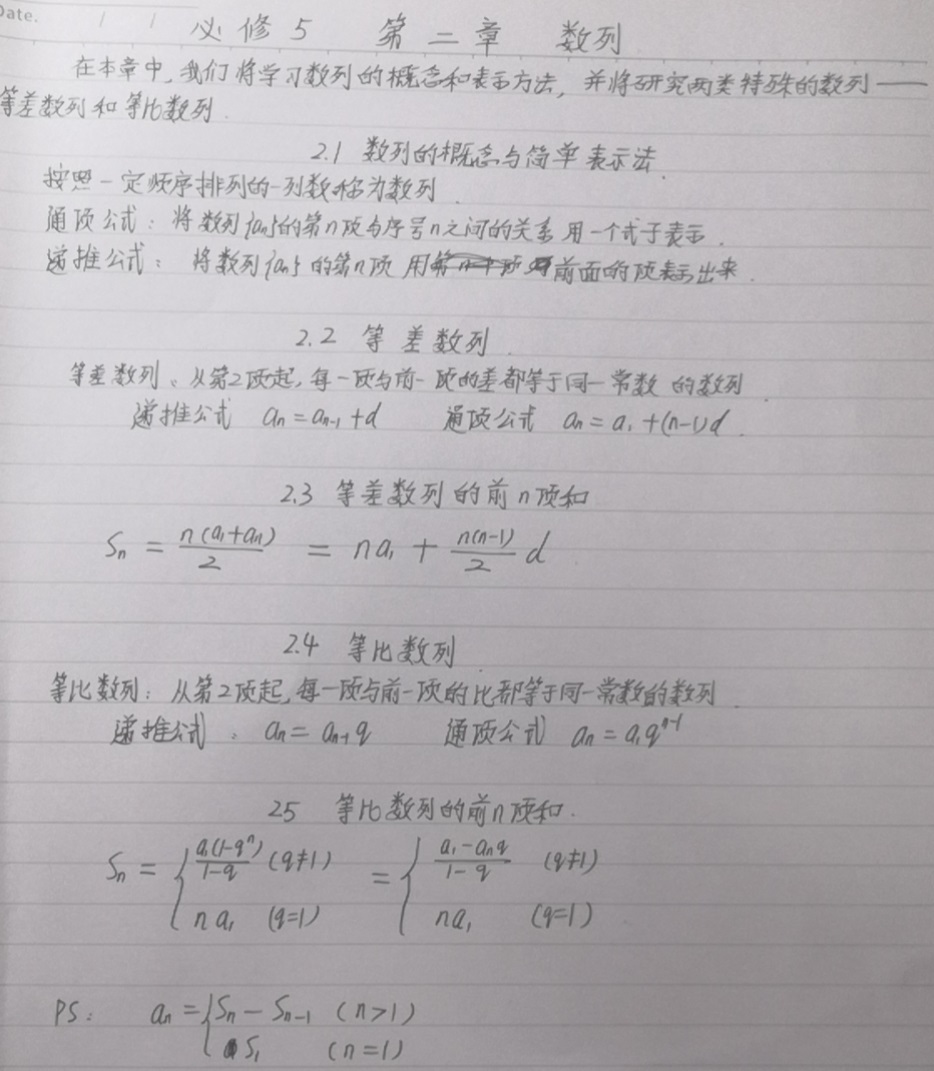 Date. / /
必修5 第二章 数列
在本章中,我们将学习数列的概念和表示方法,并将研究两类特殊的数列——
等差数列和等比数列.
2.1 数列的概念与简单表示法.
按照一定顺序排列的一列数称为数列.
通项公式:将数列{an}的第n项与序号n之间的关系用一个式子表示.
递推公式:将数列{an}的第n项用前面的项表示出来.
2.2 等差数列.
等差数列:从第2项起,每一项与前一项的差都等于同一常数的数列.
递推公式 an=an-1+d 通项公式 an=a1+(n-1)d.
2.3 等差数列的前n项和
Sn = n(a1+an)/2 = na1 + n(n-1)/2 d
2.4 等比数列.
等比数列:从第2项起,每一项与前一项的比都等于同一常数的数列.
递推公式: an=an-1q 通项公式 an=a1q^(n-1)
25 等比数列的前n项和.
Sn = { a1(1-q^n)/(1-q) (q≠1) = { (a1-anq)/(1-q) (q≠1)
na1 (q=1) na1 (q=1)
PS: an = { Sn - Sn-1 (n>1)
S1 (n=1)